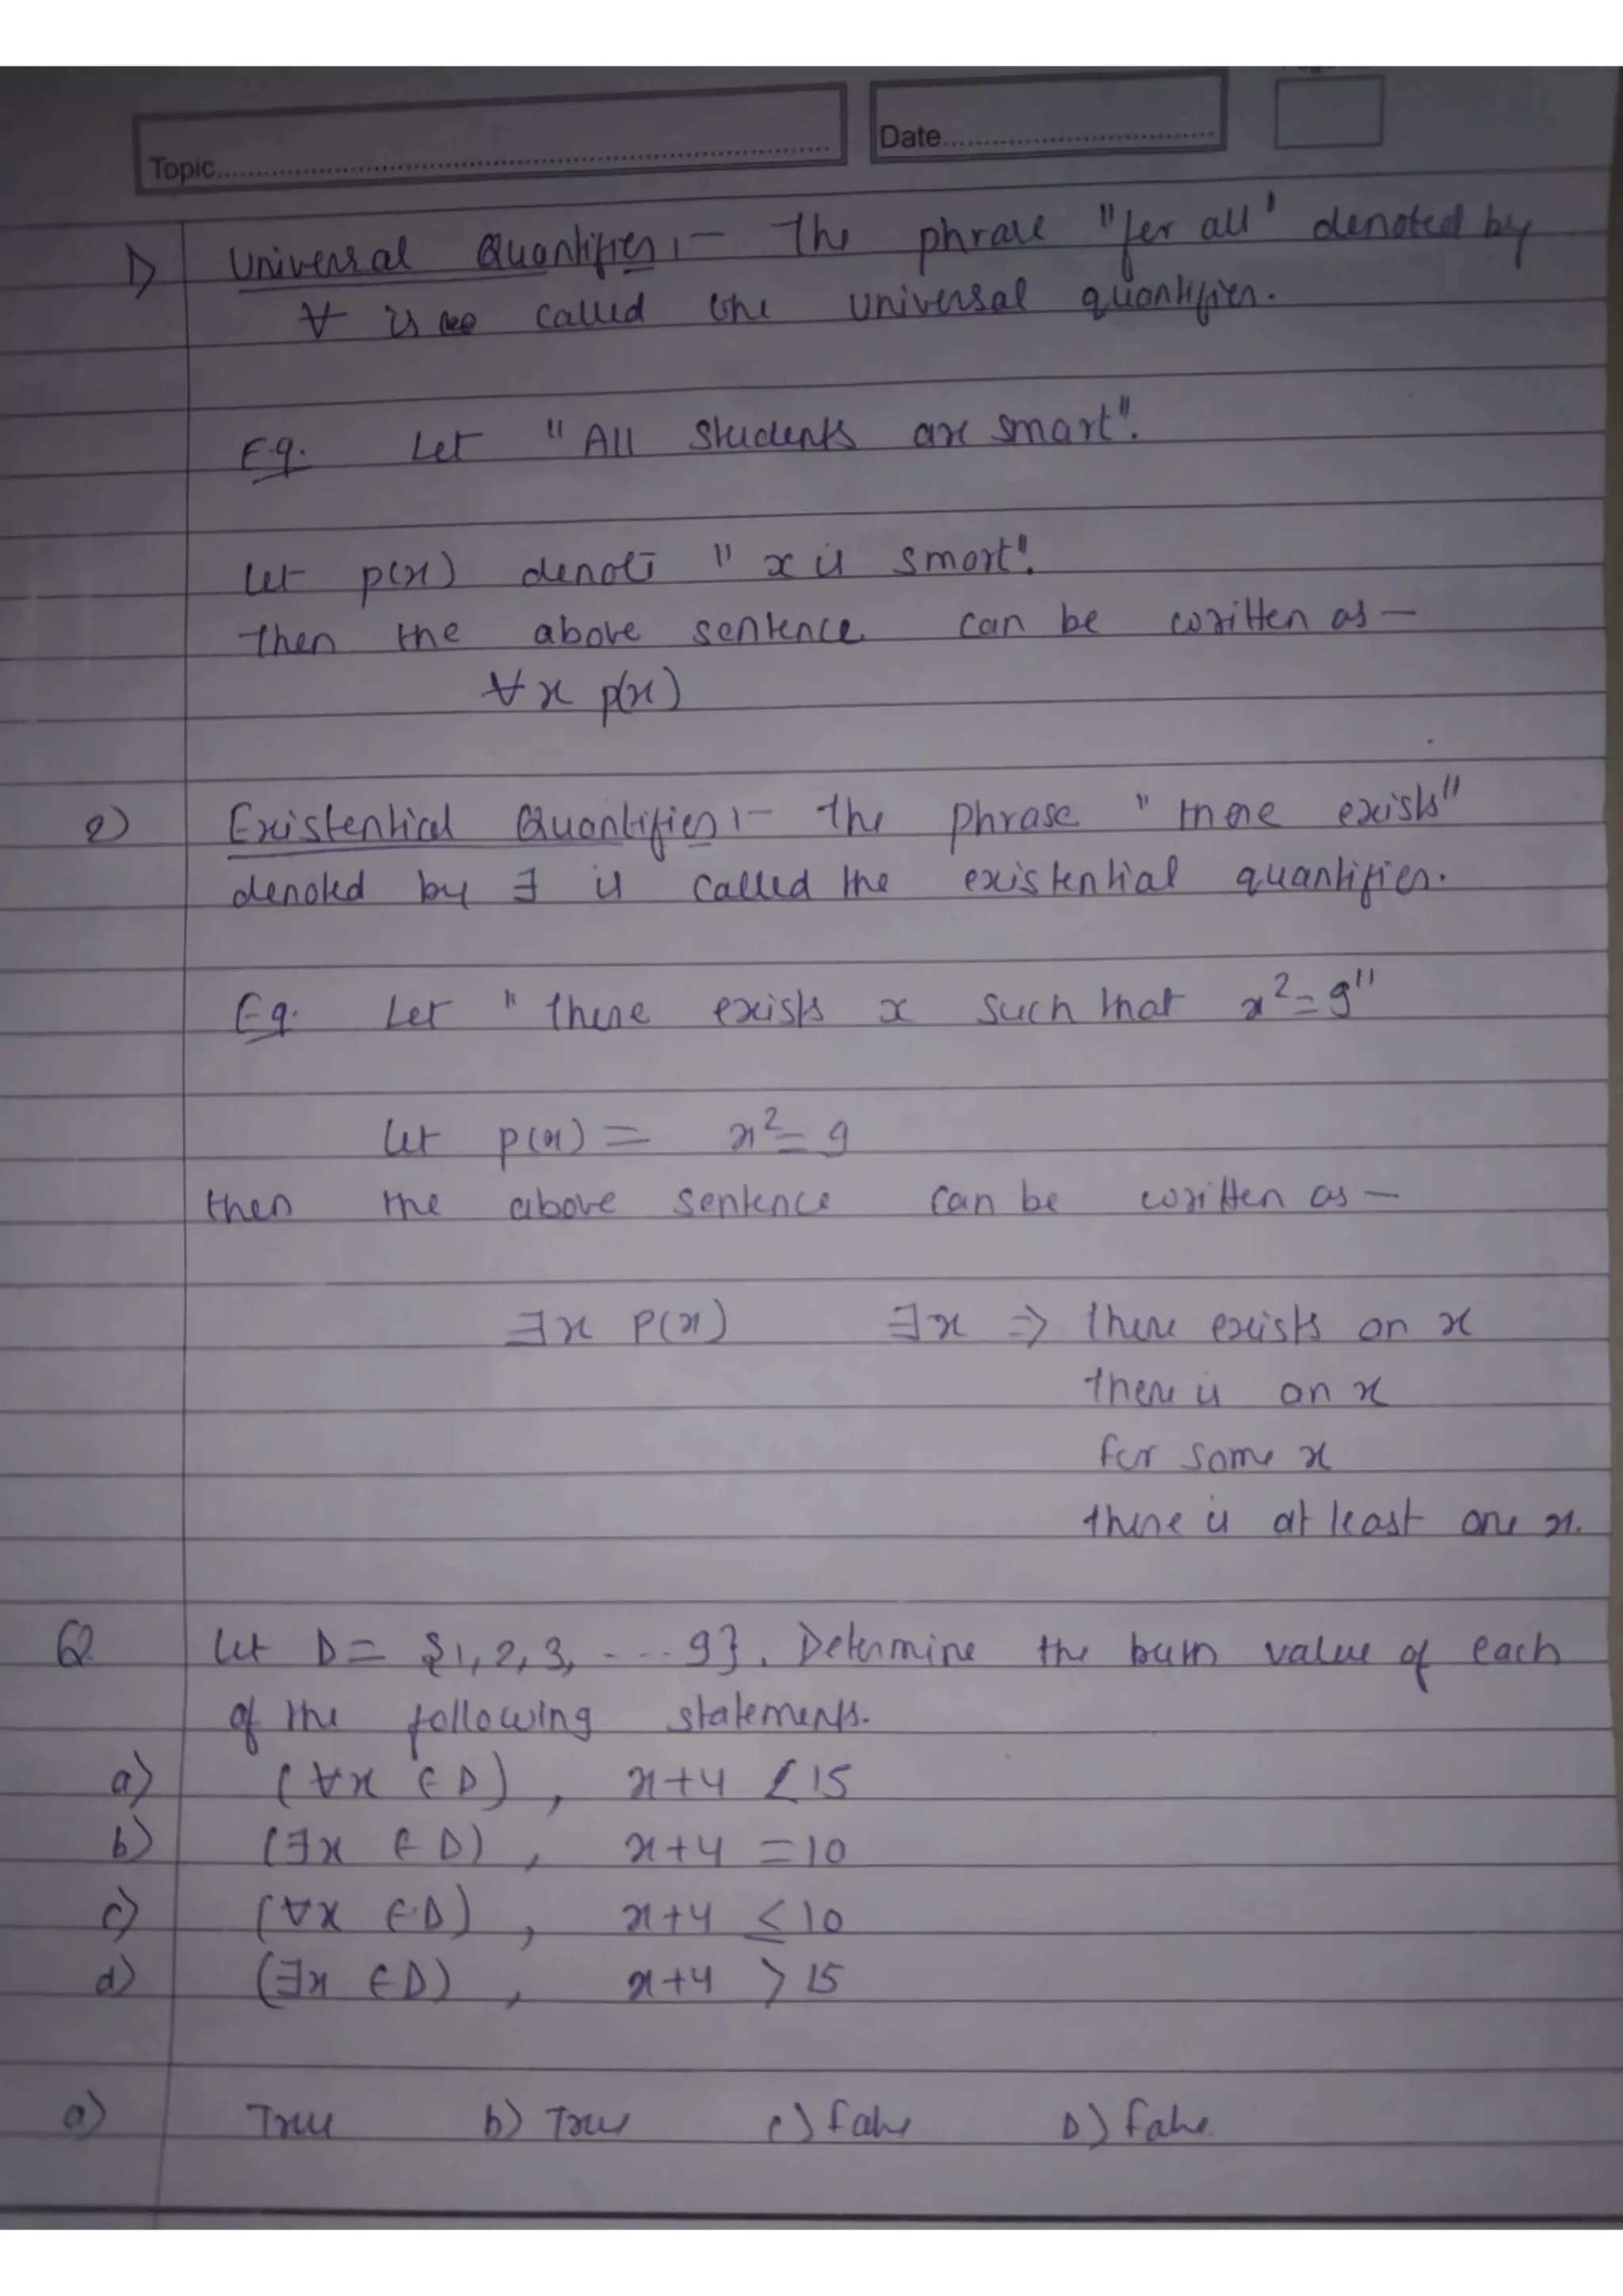 Topic
Date
1) Universal Quantifier :- The phrase "for all" denoted by
∀ is called the universal quantifier.
Eg. Let "All students are smart".
Let p(x) denote "x is smart".
Then the above sentence can be written as —
∀x p(x)
2) Existential Quantifier :- The phrase "there exists"
denoted by ∃ is called the existential quantifier.
Eg. Let "there exists x such that x² = 9"
Let p(x) = x² = 9
then the above sentence can be written as —
∃x P(x) ∃x ⇒ there exists an x
there is an x
for some x
there is at least one x.
Q. Let D = {1, 2, 3, --- 9}. Determine the truth value of each
of the following statements.
a) (∀x ∈ D), x+4 < 15
b) (∃x ∈ D), x+4 = 10
c) (∀x ∈ D), x+4 ≤ 10
d) (∃x ∈ D), x+4 > 15
a) True b) True c) false D) false